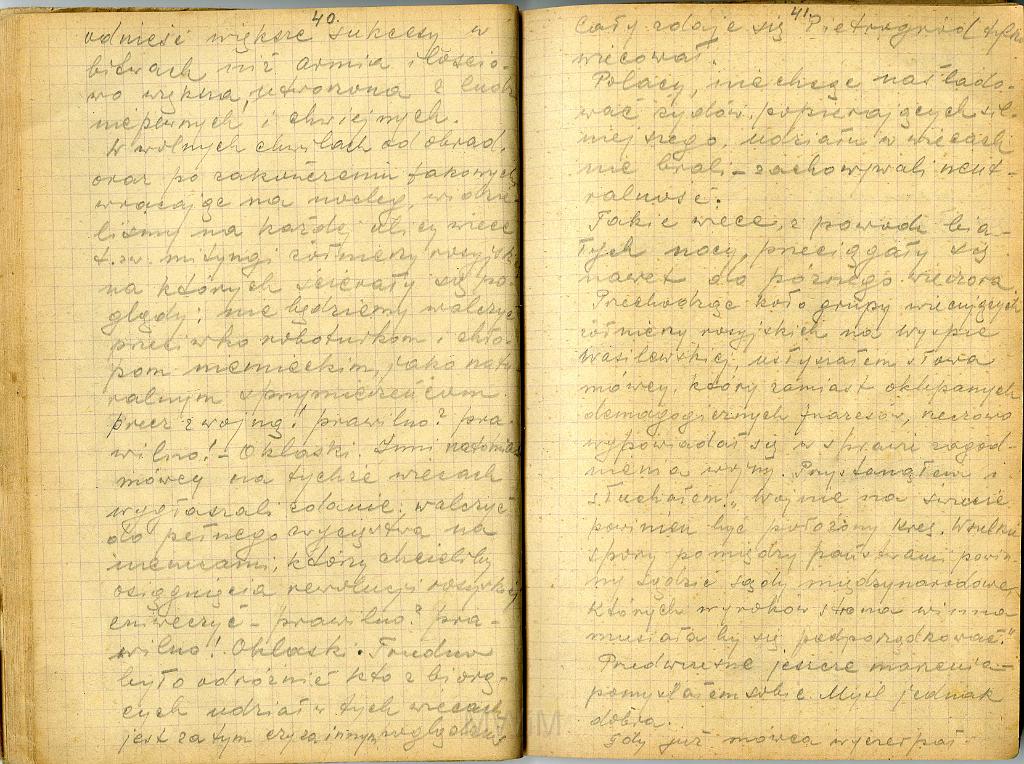 40.
odnieść większe sukcesy w
bitwach niż armia ilościo-
wo większa, utworzona z ludzi
niepewnych i chwiejnych.
W wolnych chwilach od obrad,
oraz po zakończeniu takowych
wracając na nocleg, widzie-
liśmy na każdej ulicy wiece
t.zw. mityngi żołnierzy rosyjsk.
na których ścierały się po-
glądy: nie będziemy walczyć
przeciwko robotnikom i chło-
pom niemieckim, jako natu-
ralnym sprzymierzeńcom.
Precz z wojną! prawilno? pra-
wilno! - Oklaski. Inni natomiast
mówcy na tychże wiecach
wygłaszali zdanie: walczyć
do pełnego zwycięstwa nad
niemcami, którzy chcieliby
osiągnięcia rewolucji rosyjskiej
zniweczyć - prawilno? pra-
wilno! Oklaski. Trudno
było odróżnić kto z biorą-
cych udział w tych wiecach
jest za tym czy za innym poglądem
41.
Cały zdaje się Pietrogród tylko
wiecował.
Polacy, nie chcąc naślado-
wać żydów, popierających sil-
niejszego, udziału w wiecach
nie brali - zachowywali neut-
ralność.
Takie wiece, z powodu bia-
łych nocy, przeciągały się
nawet do późnego wieczora.
Przechodząc koło grupy wiecujących
żołnierzy rosyjskich na wyspie
Wasilewskiej, usłyszałem słowa
mówcy, który zamiast oklepanych
demagogicznych frazesów, rzeczowo
wypowiadał się w sprawie zagad-
nienia wojny. Przystanąłem i
słuchałem: „Wojnie na świecie
powinien być położony kres. Wszelkie
spory pomiędzy państwami powin-
ny sądzić sądy międzynarodowe,
których wyroków strona winna
musiałaby się podporządkować."
Przedwczesne jeszcze marzenia -
pomyślałem sobie. Myśl jednak
dobra.
Gdy już mówca wyczerpał
MWM